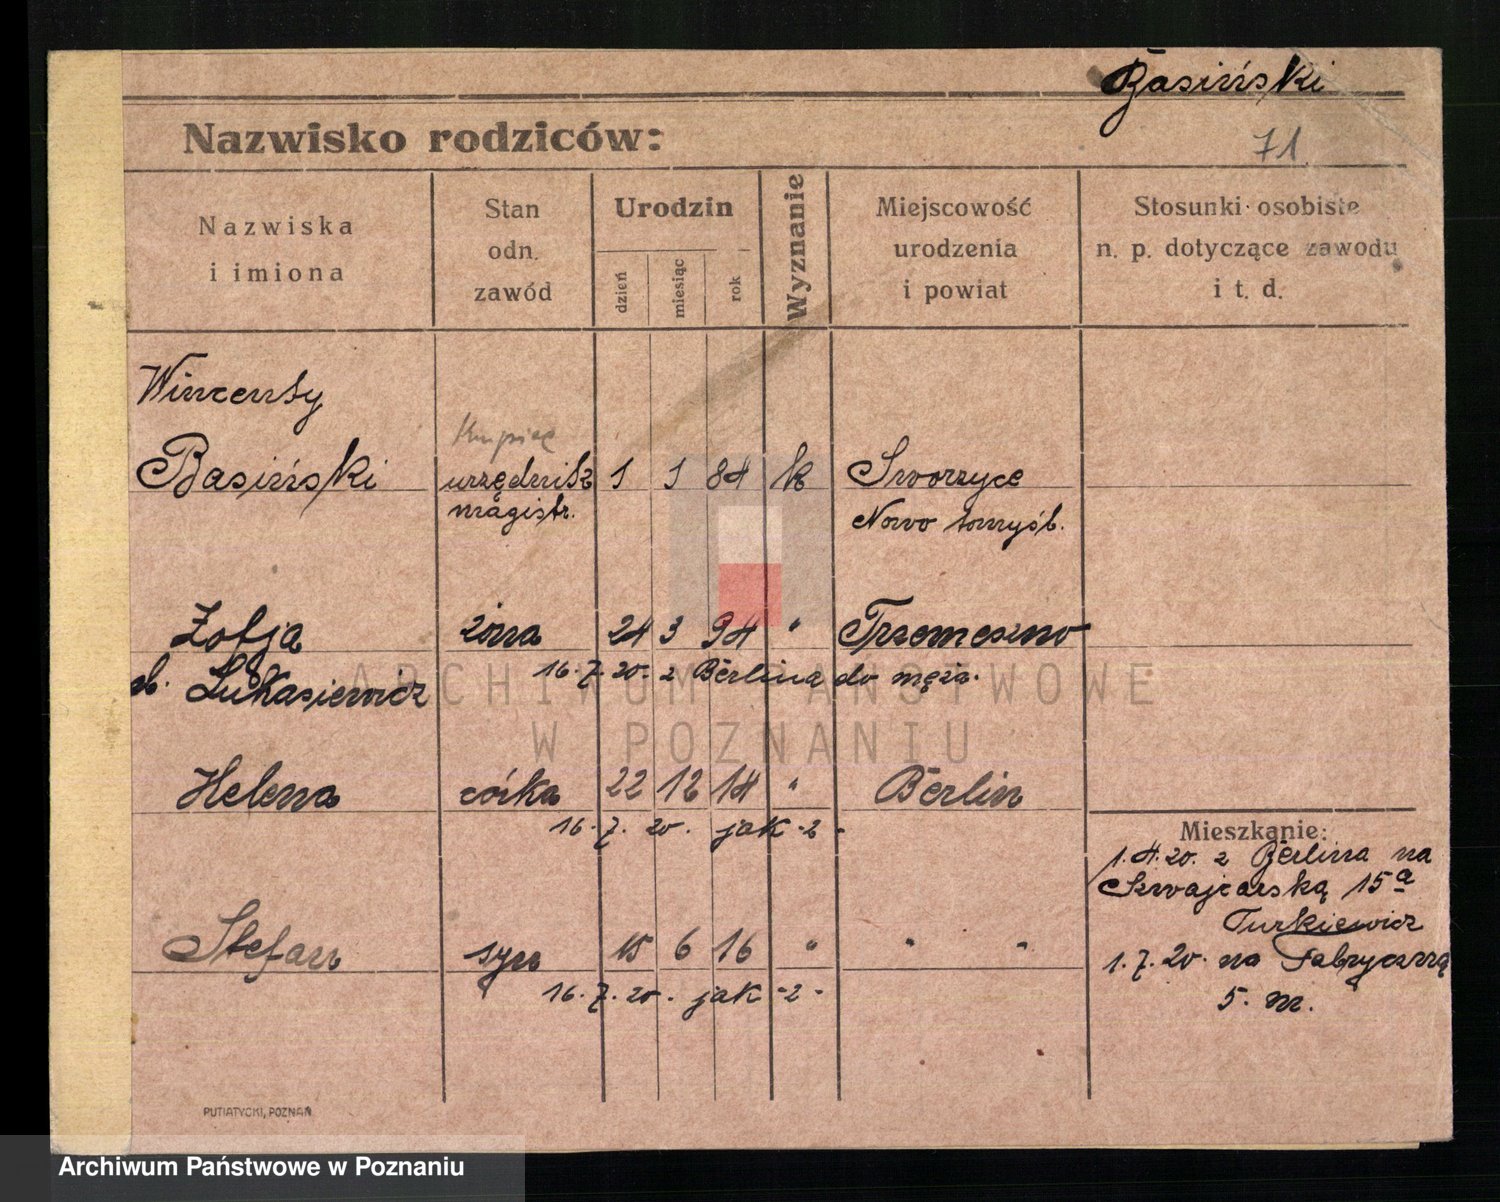 Basiński
Nazwisko rodziców:
71
Nazwiska
i imiona
Stan
odn.
zawód
Urodzin
dzień
miesiąc
rok
Wyznanie
Miejscowość
urodzenia
i powiat
Stosunki osobiste
n. p. dotyczące zawodu
i t. d.
Wincenty
Kupiec
Basiński urzędnik 1 1 84 k Sworzyce
magistr. Nowo tomyśl.
Zofja żona 24 3 94 " Trzemeszno
16.7.20. z Berlina do męża.
Łukasiewicz
Helena córka 22 12 14 " Berlin
16.7.20. jak -2-.
Mieszkanie:
1.4.20. z Berlina na
Szwajcarską 15a
Turkiewicz
Stefan syn 15 6 16 " " "
1.7.20. na Fabryczną
16.7.20. jak -2-.
5. m.
PUTIATYCKI, POZNAŃ
ARCHIWUM PAŃSTWOWE
W POZNANIU
Archiwum Państwowe w Poznaniu